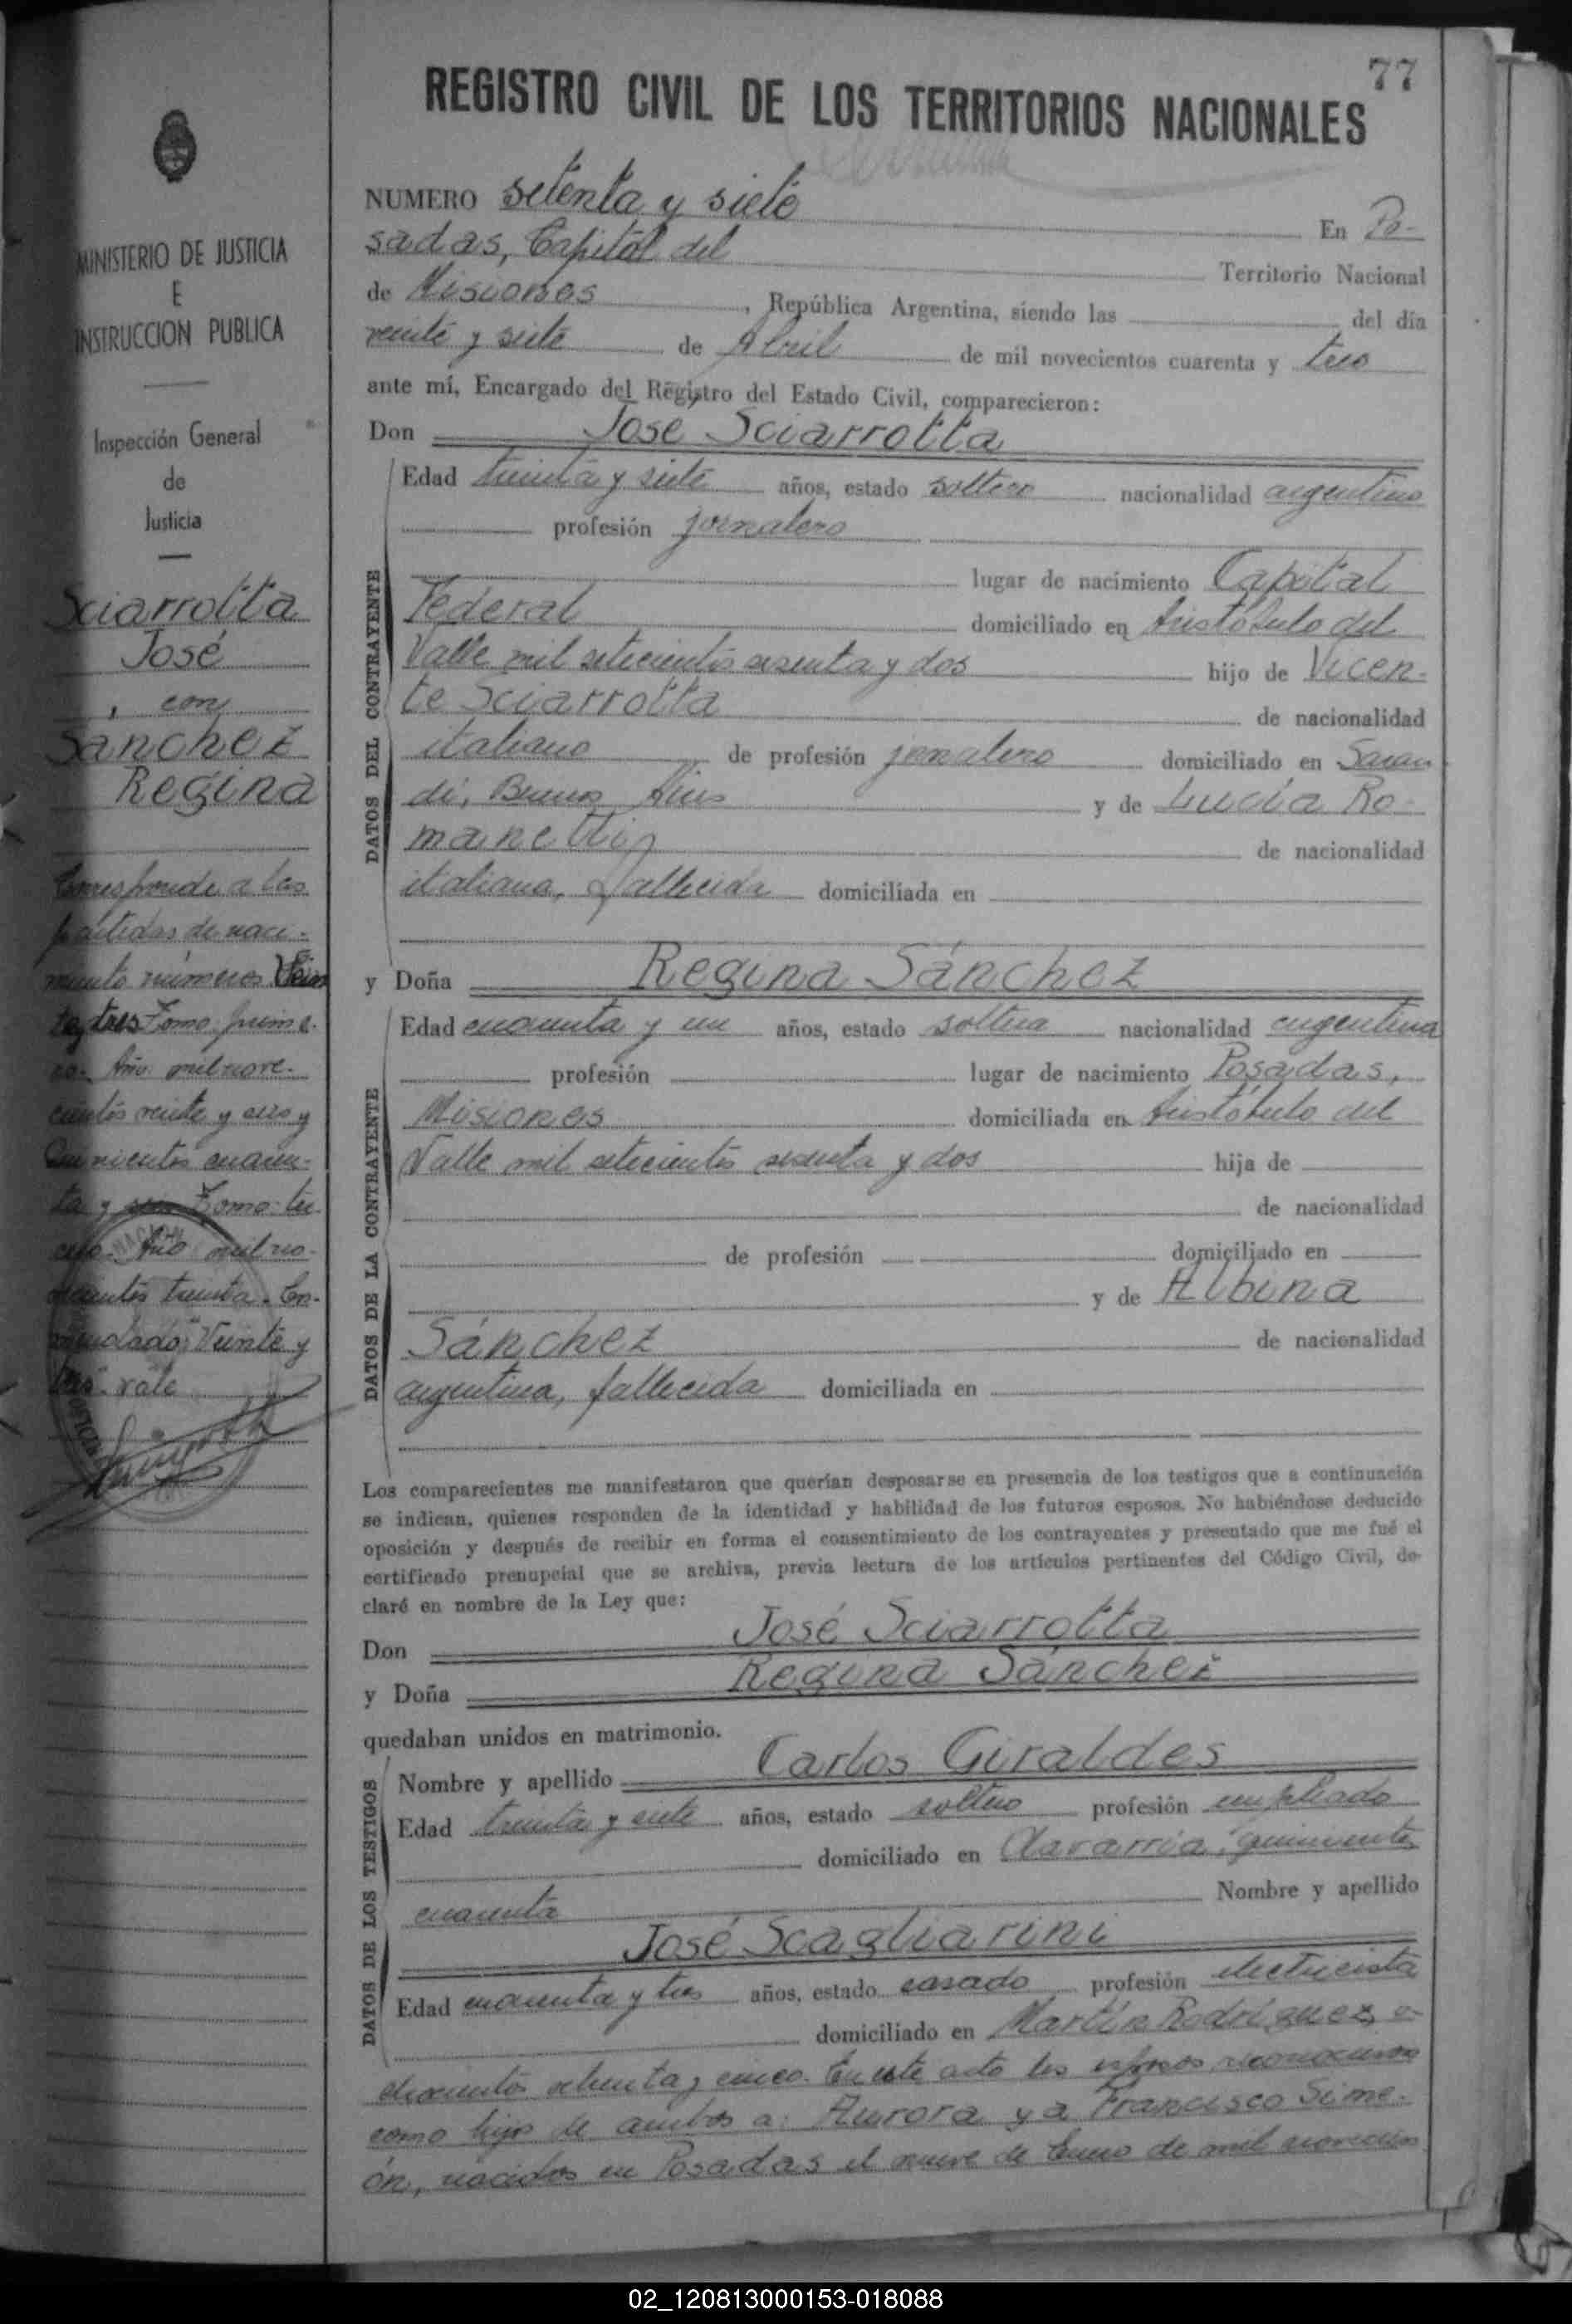 77
REGISTRO CIVIL DE LOS TERRITORIOS NACIONALES
MINISTERIO DE JUSTICIA
E
INSTRUCCION PUBLICA
Inspección General
de
Justicia
Sciarrotta
José
, con
Sánchez
Regina
Corresponde a las
partidas de naci-
miento números Vein
te y tres Tomo prime-
ro. Año mil nove-
cientos veinte y seis y
Quinientos cuaren-
ta y Tomo ter-
cero. Año mil no-
vecientos treinta. En-
mendado: "Veinte y
tres" vale
NUMERO setenta y siete En Po-
sadas, Capital del Territorio Nacional
de Misiones, República Argentina, siendo las del día
veinte y siete de Abril de mil novecientos cuarenta y tres
ante mí, Encargado del Régistro del Estado Civil, comparecieron:
Don José Sciarrotta
DATOS DEL CONTRAYENTE
Edad treinta y siete años, estado soltero nacionalidad argentino
profesión jornalero
lugar de nacimiento Capital
Federal domiciliado en Aristóbulo del
Valle mil setecientos sesenta y dos hijo de Vicen-
te Sciarrotta de nacionalidad
italiano de profesión jornalero domiciliado en Saran
di, Buenos Aires y de Lucía Ro-
manetti de nacionalidad
italiana, fallecida domiciliada en
y Doña Regina Sánchez
DATOS DE LA CONTRAYENTE
Edad cuarenta y un años, estado soltera nacionalidad argentina
profesión lugar de nacimiento Posadas,
Misiones domiciliada en Aristóbulo del
Valle mil setecientos sesenta y dos hija de
de nacionalidad
de profesión domiciliado en
y de Albina
Sánchez de nacionalidad
argentina, fallecida domiciliada en
Los comparecientes me manifestaron que querían desposarse en presencia de los testigos que a continuación
se indican, quienes responden de la identidad y habilidad de los futuros esposos. No habiéndose deducido
oposición y después de recibir en forma el consentimiento de los contrayentes y presentado que me fué el
certificado prenupcial que se archiva, previa lectura de los artículos pertinentes del Código Civil, de-
claré en nombre de la Ley que:
Don José Sciarrotta
y Doña Regina Sánchez
quedaban unidos en matrimonio.
DATOS DE LOS TESTIGOS
Nombre y apellido Carlos Giraldes
Edad treinta y siete años, estado soltero profesión empleado
domiciliado en Olavarria, quinientos
cuarenta Nombre y apellido
José Scagliarini
Edad cuarenta y tres años, estado casado profesión electricista
domiciliado en Martín Rodríguez, o-
chocientos ochenta y cinco. En este acto los esposos reconocieron
como hijos de ambos a: Aurora y a Francisco Sime-
ón, nacidos en Posadas el nueve de Enero de mil novecien
02_120813000153-018088